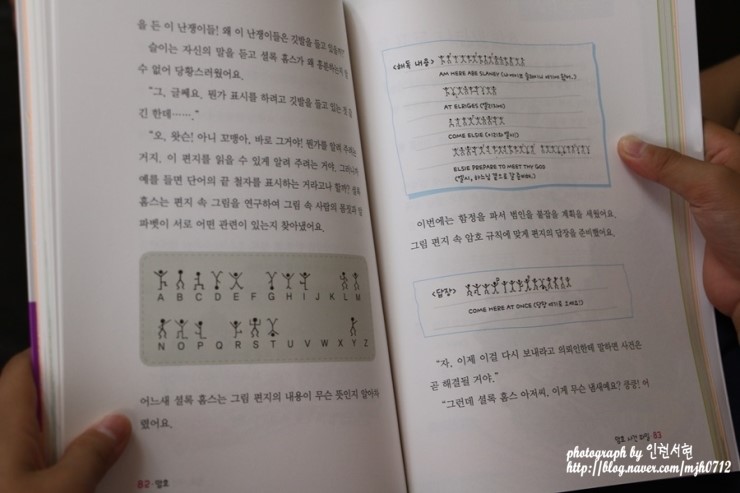 을 든 이 난쟁이들! 왜 이 난쟁이들은 깃발을 들고 있을까?
슬이는 자신의 말을 듣고 셜록 홈스가 왜 흥분하는지 알
수 없어 당황스러웠어요.
"그, 글쎄요. 뭔가 표시를 하려고 깃발을 들고 있는 것
긴 한데……."
"오, 왓슨! 아니 꼬맹아, 바로 그거야! 뭔가를 알려 주려는
거지. 이 편지를 읽을 수 있게 알려 주려는 거야. 그러니까
예를 들면 단어의 끝 철자를 표시하는 거라고나 할까?
홈스는 편지 속 그림을 연구하여 그림 속 사람의 동작과
파벳이 서로 어떤 관련이 있는지 찾아냈어요.
A B C D E F G H I J K L M
N O P Q R S T U V W X Y Z
어느새 셜록 홈스는 그림 편지의 내용이 무슨 뜻인지 알아차
렸어요.
82 · 암호
<해독 내용>
AM HERE ABE SLANEY
AT ELRIGES
COME ELSIE
ELSIE PREPARE TO MEET THY GOD
이번에는 함정을 파서 범인을 붙잡을 계획을 세웠어요.
그림 편지 속 암호 규칙에 맞게 편지의 답장을 준비했어요.
<답장>
COME HERE AT ONCE
"자, 이제 이걸 다시 보내라고 의뢰인한테 말하면 사건은
곧 해결될 거야."
"그런데 셜록 홈스 아저씨, 이게 무슨 냄새예요? 킁킁! 어
83
photograph by 인현서현
http://blog.naver.com/mjh0712